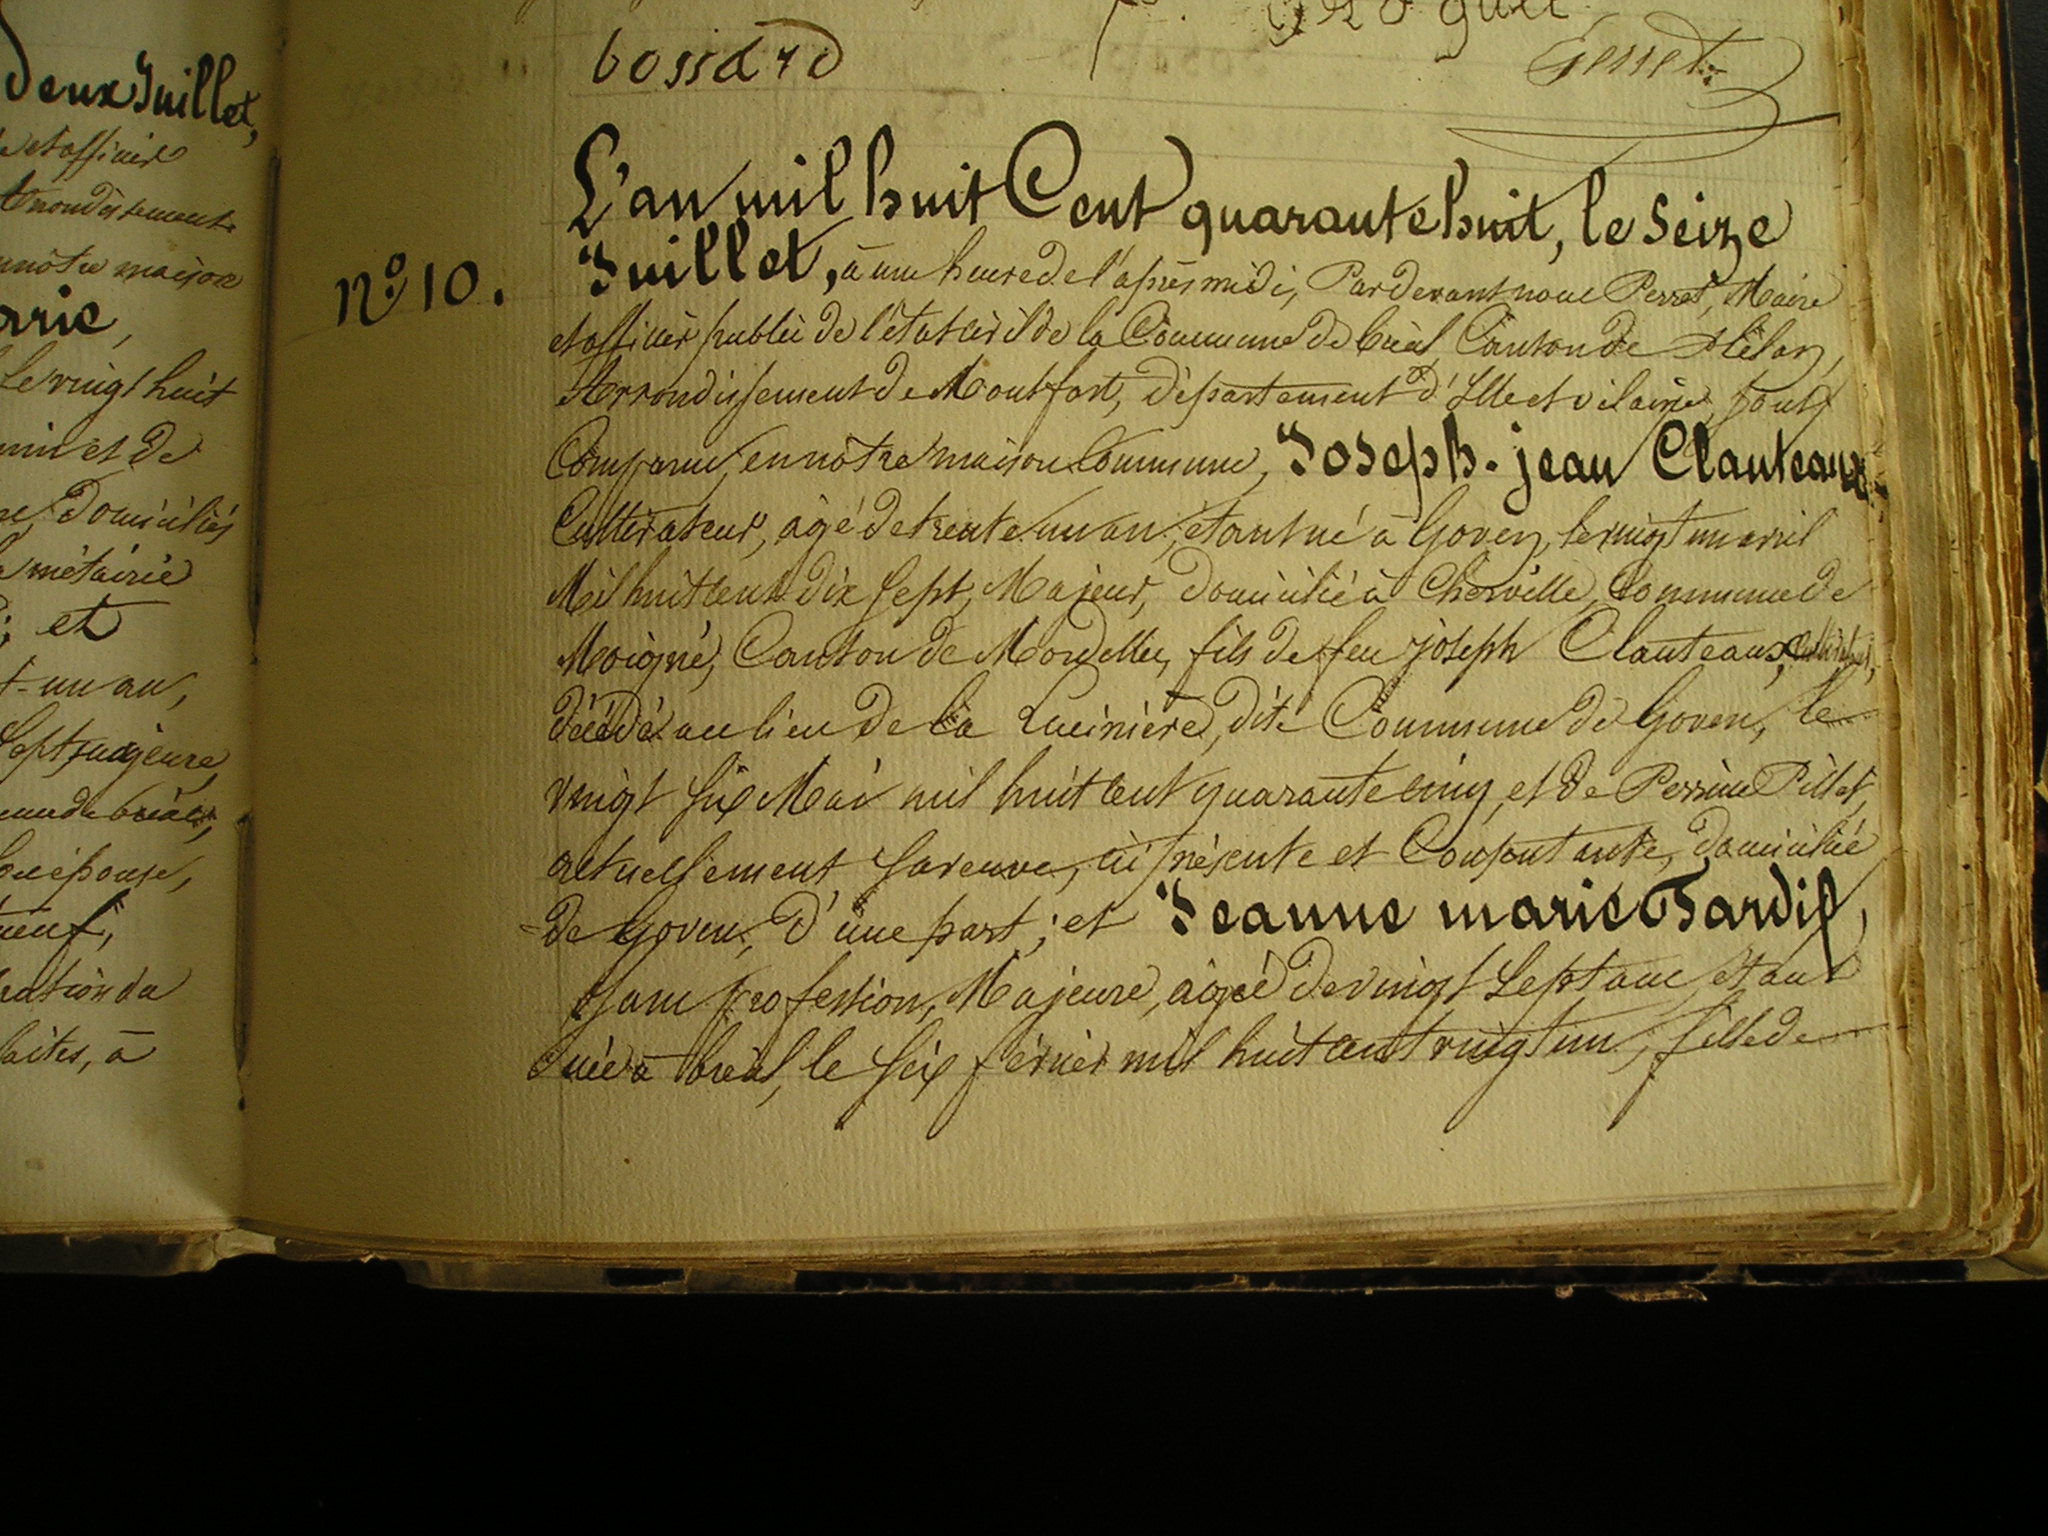 deux Juillet,
et officier
arrondissement
nôtre maison
arie,
Le vingt huit
min et de
domiciliés
métairie
; et
t-un an,
Sept, majeure,
épouse,
neuf,
ration du
faites, à
bossard
Perret
L'an mil huit Cent quarante huit, le Seize
N.º 10.
Juillet, à une heure de l'après midi, Par devant nous Perret, Maire
et officier public de l'état civil de la Commune de bréal, Canton de Plélan,
Arrondissement de Montfort, département d'Ille et vilaine, sont
Comparu, en nôtre maison Commune, Joseph-jean Clanteaux
Cultivateur, âgé de trente un an, étant né à Goven, le vingt un avril
Mil huit cent dix Sept, Majeur, domicilié à Cherville, Commune de
Moigné, Canton de Mordelles, fils de feu joseph Clanteaux, cultivateur,
décédé au lieu de la dite Commune de Goven, le
vingt six Mai mil huit cent quarante cinq, et de Perrine Pillet,
actuellement sa veuve, ici présente et Consentante, domiciliée
de Goven, d'une part; et Jeanne marie Tardif,
Sans profession, Majeure, âgée de vingt Sept ans, étant
née à bréal, le six février mil huit cent vingt un, fille de